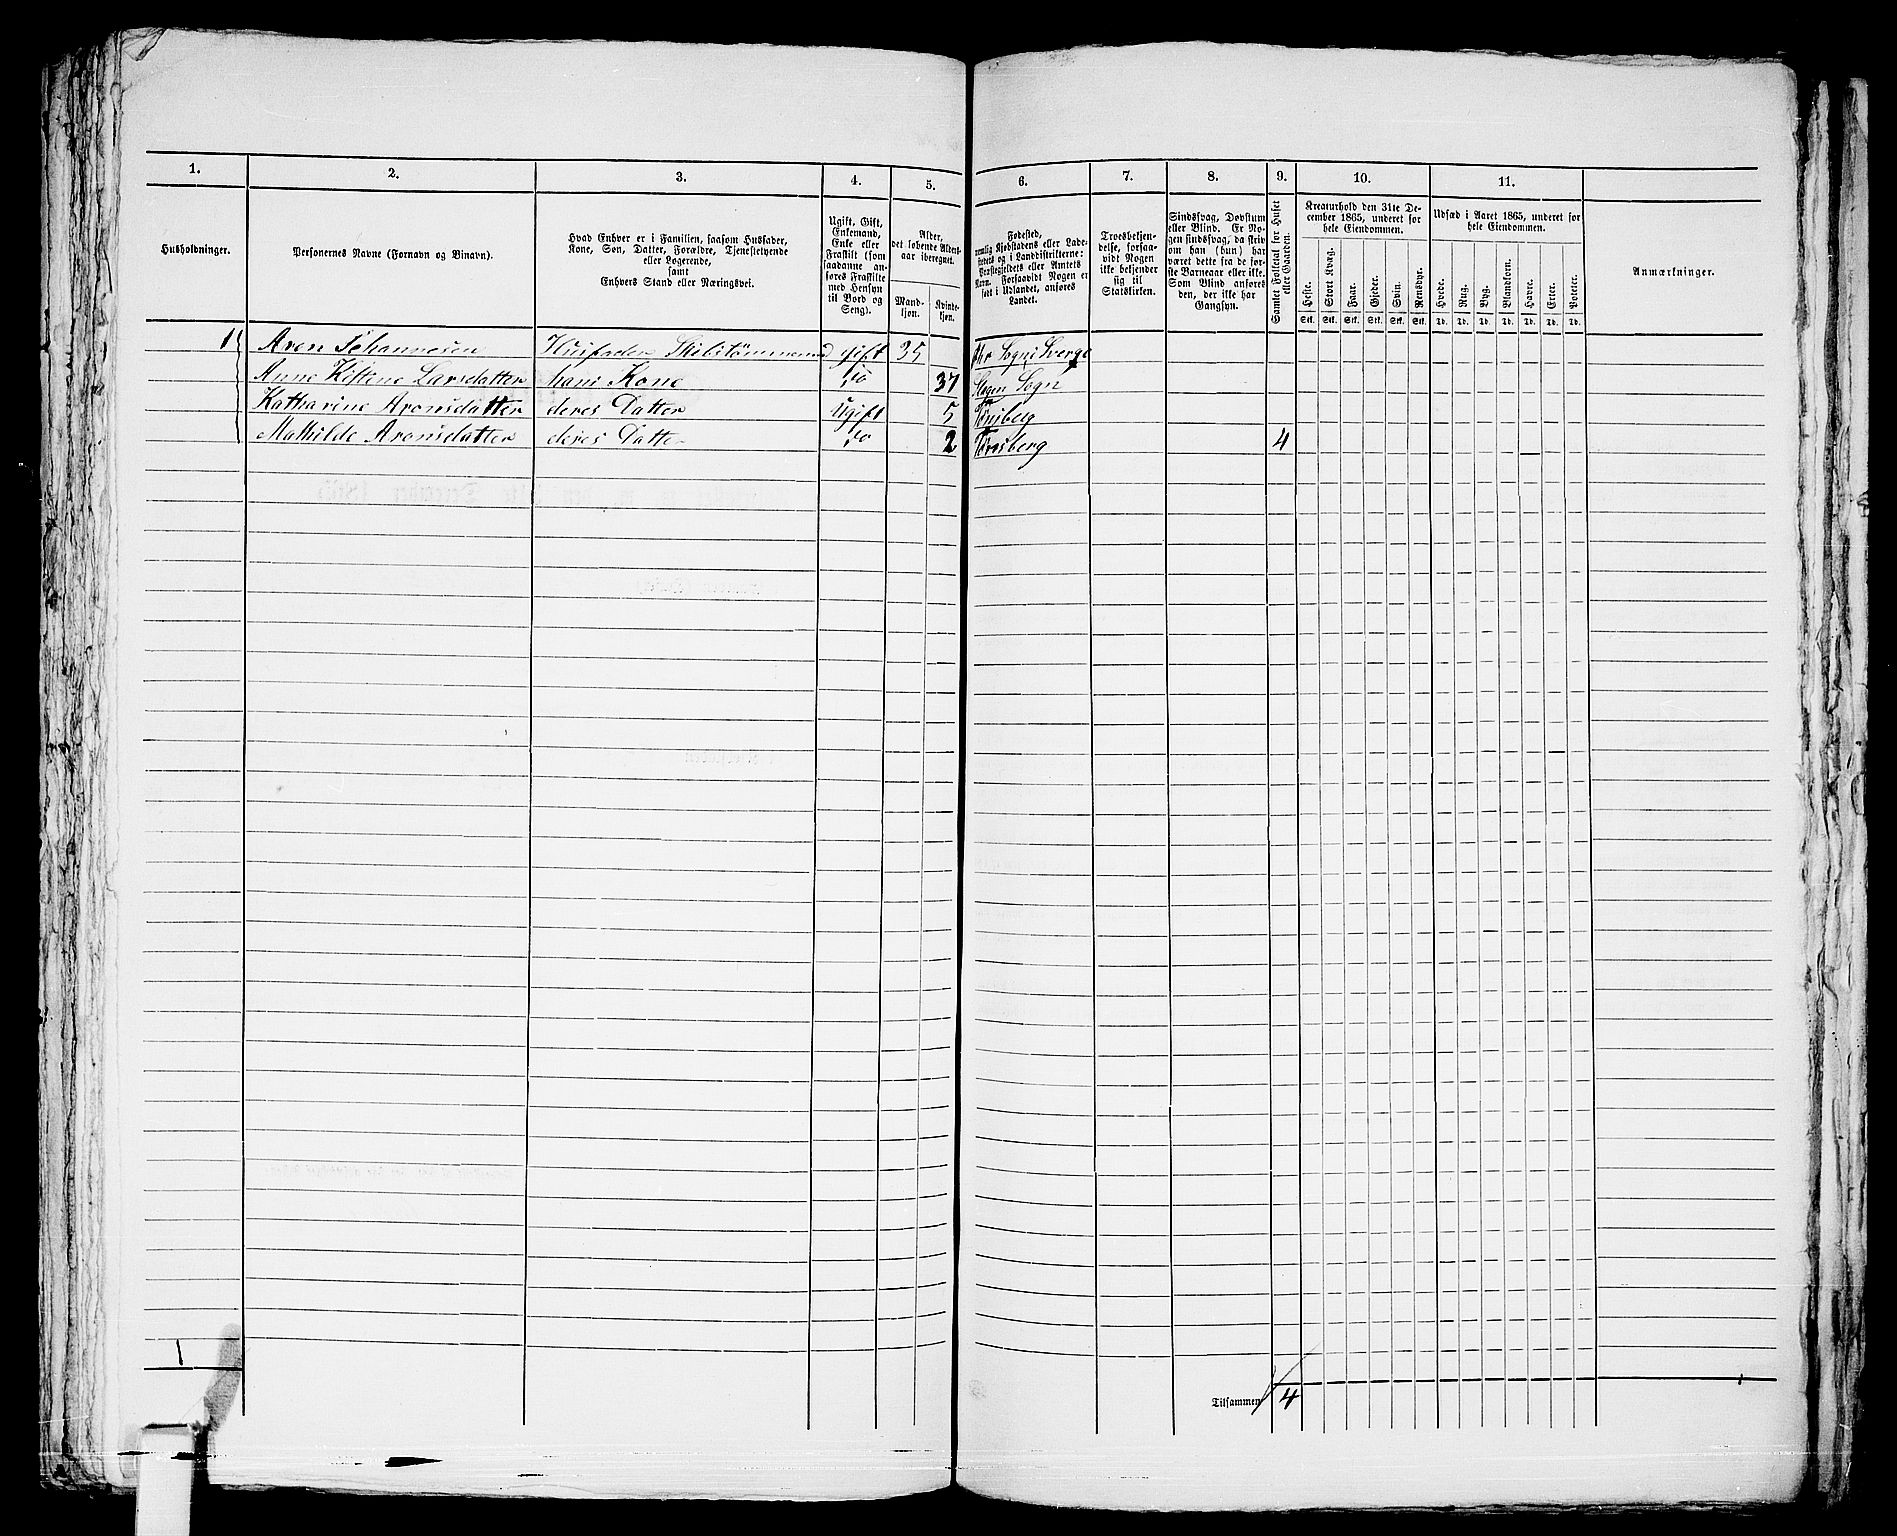 1. 2. 3. 4. 5. 6. 7. 8. 9. 10. 11.
Husholdninger.
Personernes Navne (Fornavn og Binavn).
Hvad Enhver er i Familien, saasom Husfader,
Kone, Søn, Datter, Forældre, Tjenestetyende
eller Logerende,
samt
Enhvers Stand eller Næringsvei.
Ugift, Gift,
Enkemand,
Enke eller
Fraskilt (som
saadanne an-
føres Fraskilte
med Hensyn
til Bord og
Seng).
Alder,
det løbende Alders-
aar iberegnet.
Mand-
kjøn.
Kvinde-
kjøn.
Fødested,
nemlig Kjøbstadens eller Lade-
stedets og i Landdistrikterne:
Præstegjeldets eller Amtets
Navn. Forsaavidt Nogen er
født i Udlandet, anføres
Landet.
Troesbekjen-
delse, forsaa-
vidt Nogen
ikke bekjender
sig til
Statskirken.
Sindssvag, Døvstum
eller Blind. Er No-
gen sindssvag, da skriv
om han (hun) har
været dette fra de før-
ste Barneaar eller ikke.
Som Blind anføres
den, der ikke har
Gangsyn.
Samlet Folketal for Huset
eller Gaarden.
Kreaturhold den 31te De-
cember 1865, underet for
hele Eiendommen.
Heste. Stort Kvæg. Faar. Gjeder. Svin. Rensdyr.
Stk. Stk. Stk. Stk. Stk. Stk.
Udsæd i Aaret 1865, underet for
hele Eiendommen.
Hvede. Rug. Byg. Blandkorn. Havre. Erter. Poteter.
Td. Td. Td. Td. Td. Td. Td.
Anmærkninger.
1 Aron Johannesen Husfader Skibstømmermand gift 35 Sogn i Sverge
Anne Kistene Larsdatter hans Kone do 37 Slagen Sogn
Katharine Aronsdatter deres Datter Ugift 5 Tønsberg
Mathilde Aronsdatter deres Datter do 2 Tønsberg 4
1
Tilsammen 4